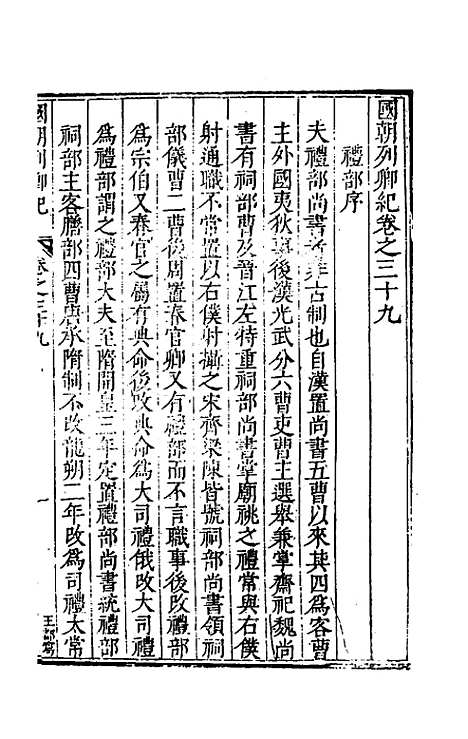 國朝列卿紀卷之三十九
禮部序
夫禮部尚書者非古制也自漢置尚書五曹以來其四為客曹
主外國夷狄事後漢光武分六曹吏曹主選舉兼掌齋祀魏尚
書有祠部曹及晉江左特重祠部尚書掌廟祧之禮常與右僕
射通職不常置以右僕射攝之宋齊梁陳皆號祠部尚書領祠
部儀曹二曹後周置春官卿又有禮部而不言職事後改禮部
為宗伯又春官之屬有典命後改典命為大司禮俄改大司禮
為禮部謂之禮部大夫至隋開皇三年定置禮部尚書統禮部
祠部主客膳部四曹唐承隋制不改龍朔二年改為司禮太常
國朝列卿紀
卷之三十九
一